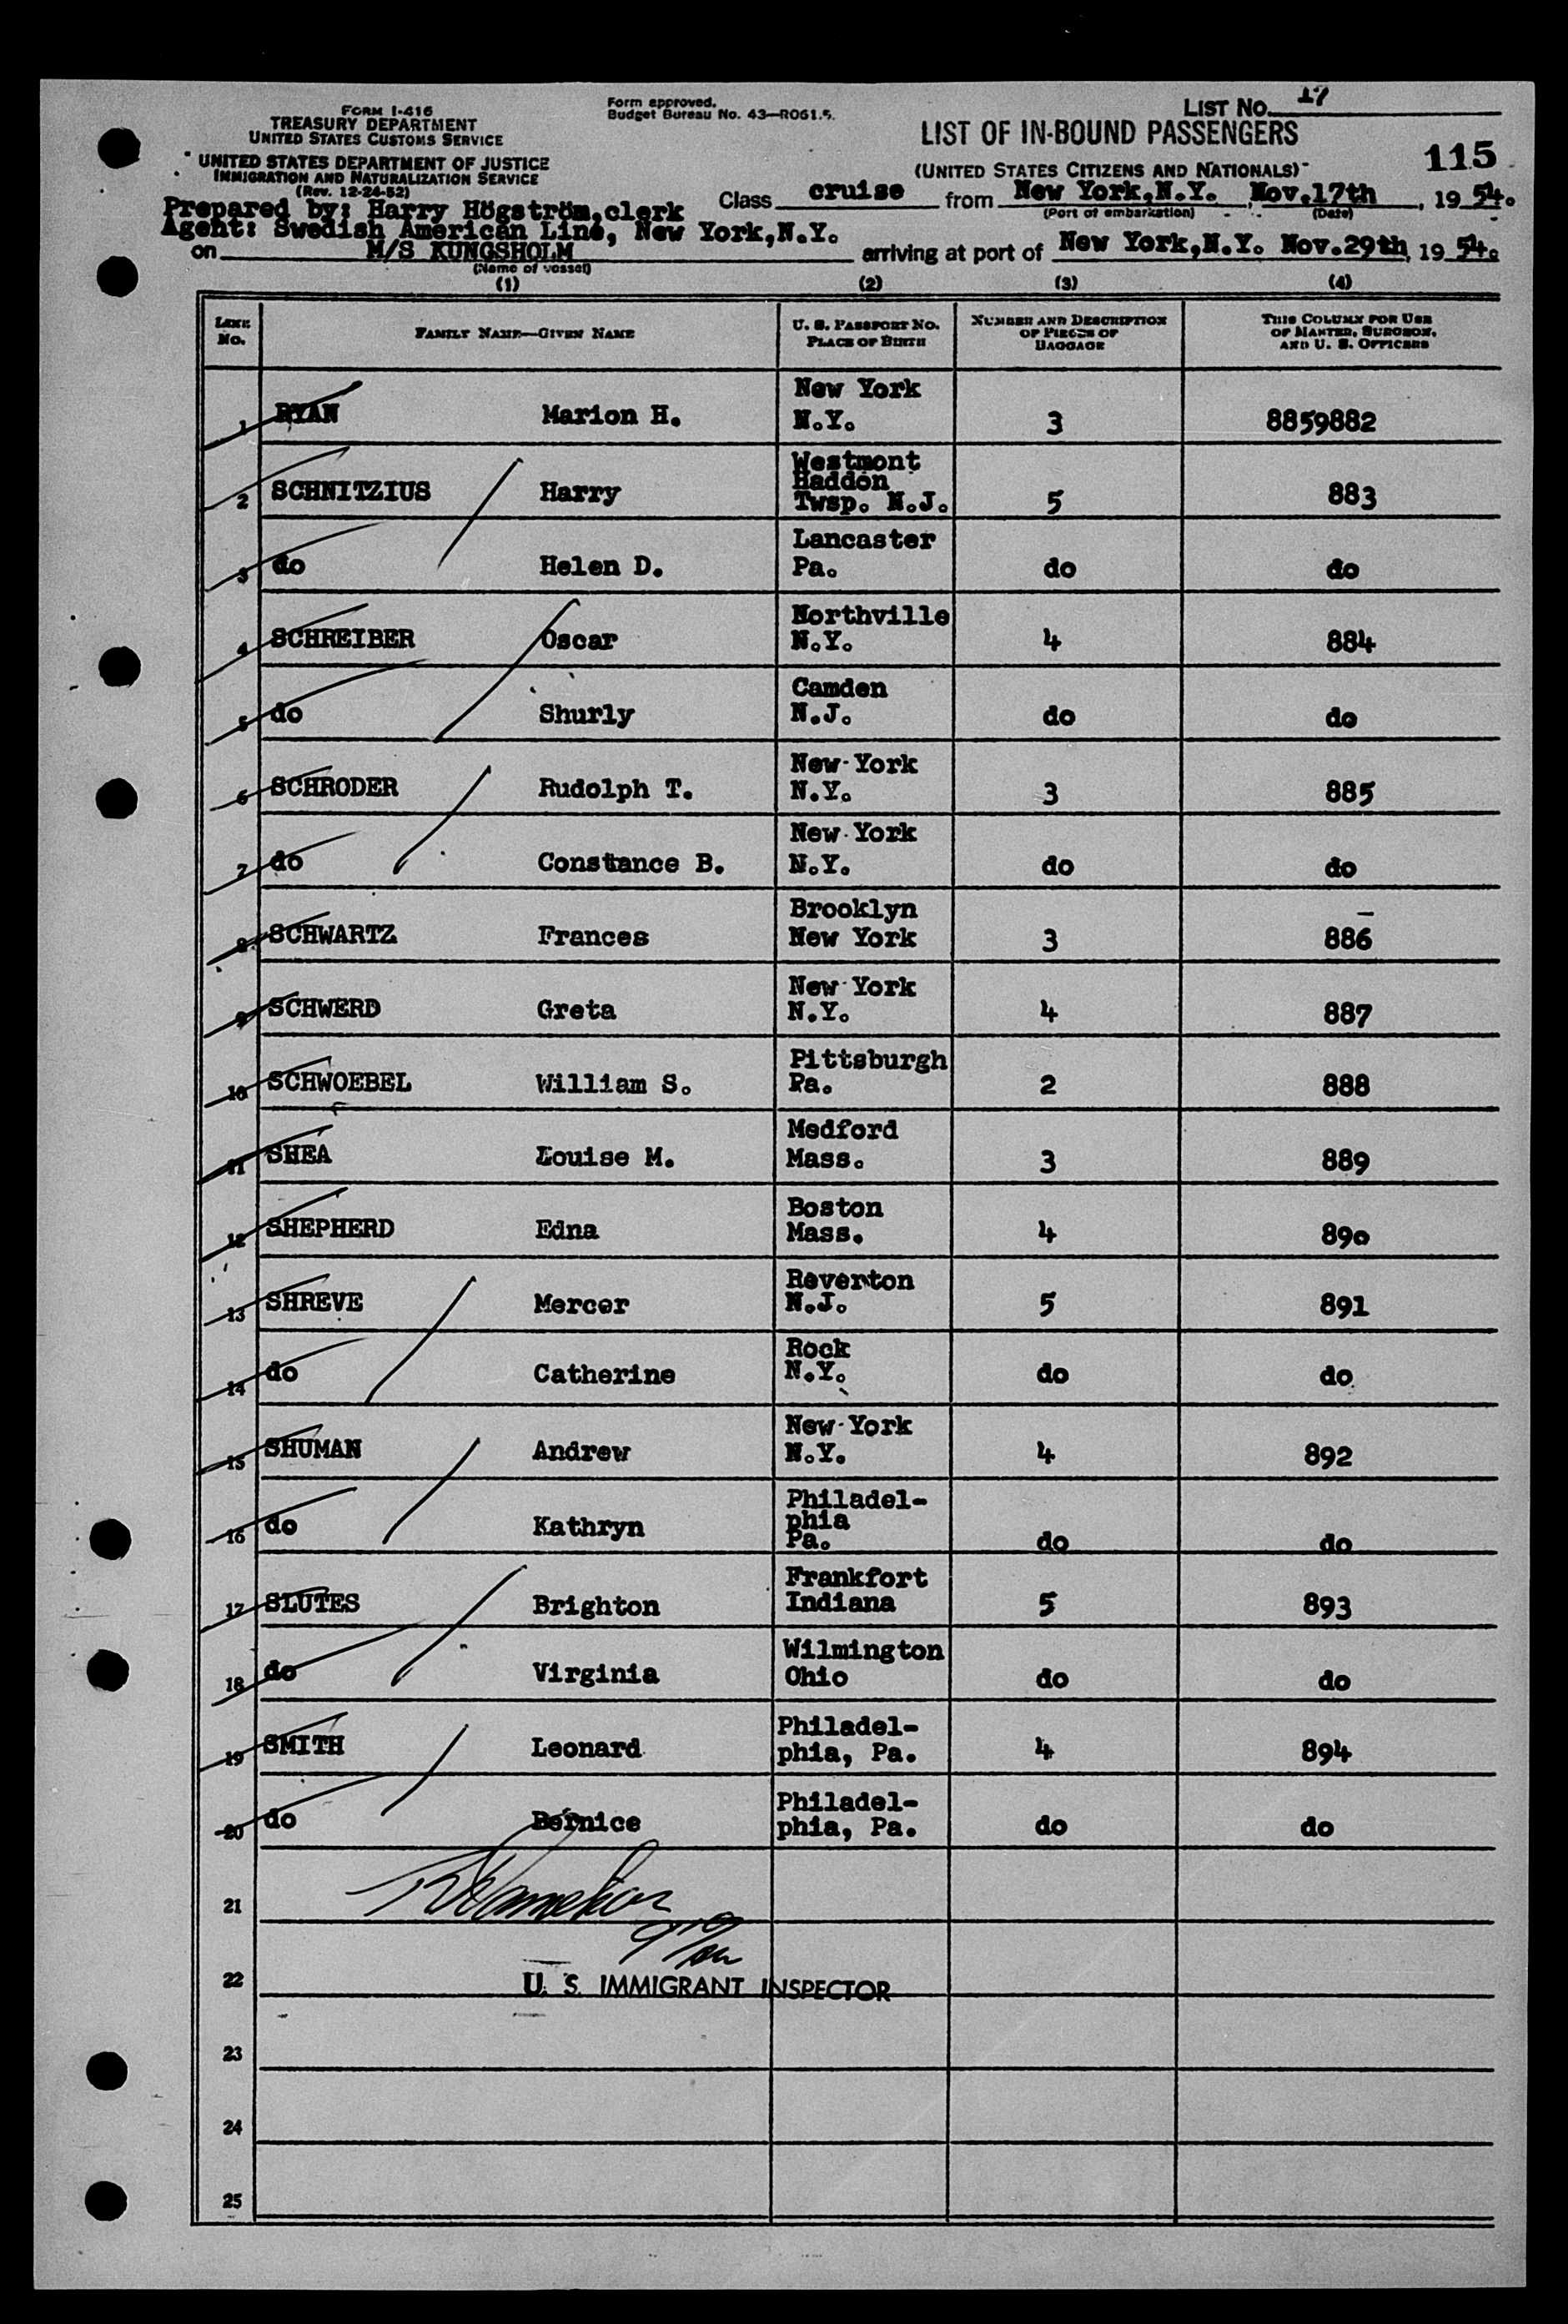 FORM I-416
TREASURY DEPARTMENT
UNITED STATES CUSTOMS SERVICE
UNITED STATES DEPARTMENT OF JUSTICE
IMMIGRATION AND NATURALIZATION SERVICE
(Rev. 12-24-52)
Form approved.
Budget Bureau No. 43—R061.5.
LIST No. 17
LIST OF IN-BOUND PASSENGERS
(UNITED STATES CITIZENS AND NATIONALS)
115
Prepared by: Harry Högström, clerk
Agent: Swedish American Line, New York, N.Y.
Class cruise from New York, N.Y., Nov. 17th, 19 54.
(Port of embarkation) (Date)
on M/S KUNGSHOLM arriving at port of New York, N.Y. Nov. 29th, 19 54.
(Name of vessel)
(1) (2) (3) (4)
LINE No. FAMILY NAME—GIVEN NAME U. S. PASSPORT NO. PLACE OF BIRTH NUMBER AND DESCRIPTION OF PIECES OF BAGGAGE THIS COLUMN FOR USE OF MASTER, SURGEON, AND U. S. OFFICERS
1 RYAN Marion H. New York N.Y. 3 8859882
2 SCHNITZIUS Harry Westmont Haddon Twsp. N.J. 5 883
3 do Helen D. Lancaster Pa. do do
4 SCHREIBER Oscar Northville N.Y. 4 884
5 do Shurly Camden N.J. do do
6 SCHRODER Rudolph T. New York N.Y. 3 885
7 do Constance B. New York N.Y. do do
8 SCHWARTZ Frances Brooklyn New York 3 886
9 SCHWERD Greta New York N.Y. 4 887
10 SCHWOEBEL William S. Pittsburgh Pa. 2 888
11 SHEA Louise M. Medford Mass. 3 889
12 SHEPHERD Edna Boston Mass. 4 890
13 SHREVE Mercer Reverton N.J. 5 891
14 do Catherine Rock N.Y. do do
15 SHUMAN Andrew New York N.Y. 4 892
16 do Kathryn Philadel-phia Pa. do do
17 SLUTES Brighton Frankfort Indiana 5 893
18 do Virginia Wilmington Ohio do do
19 SMITH Leonard Philadel-phia, Pa. 4 894
20 do Bernice Philadel-phia, Pa. do do
21
22 U. S. IMMIGRANT INSPECTOR
23
24
25